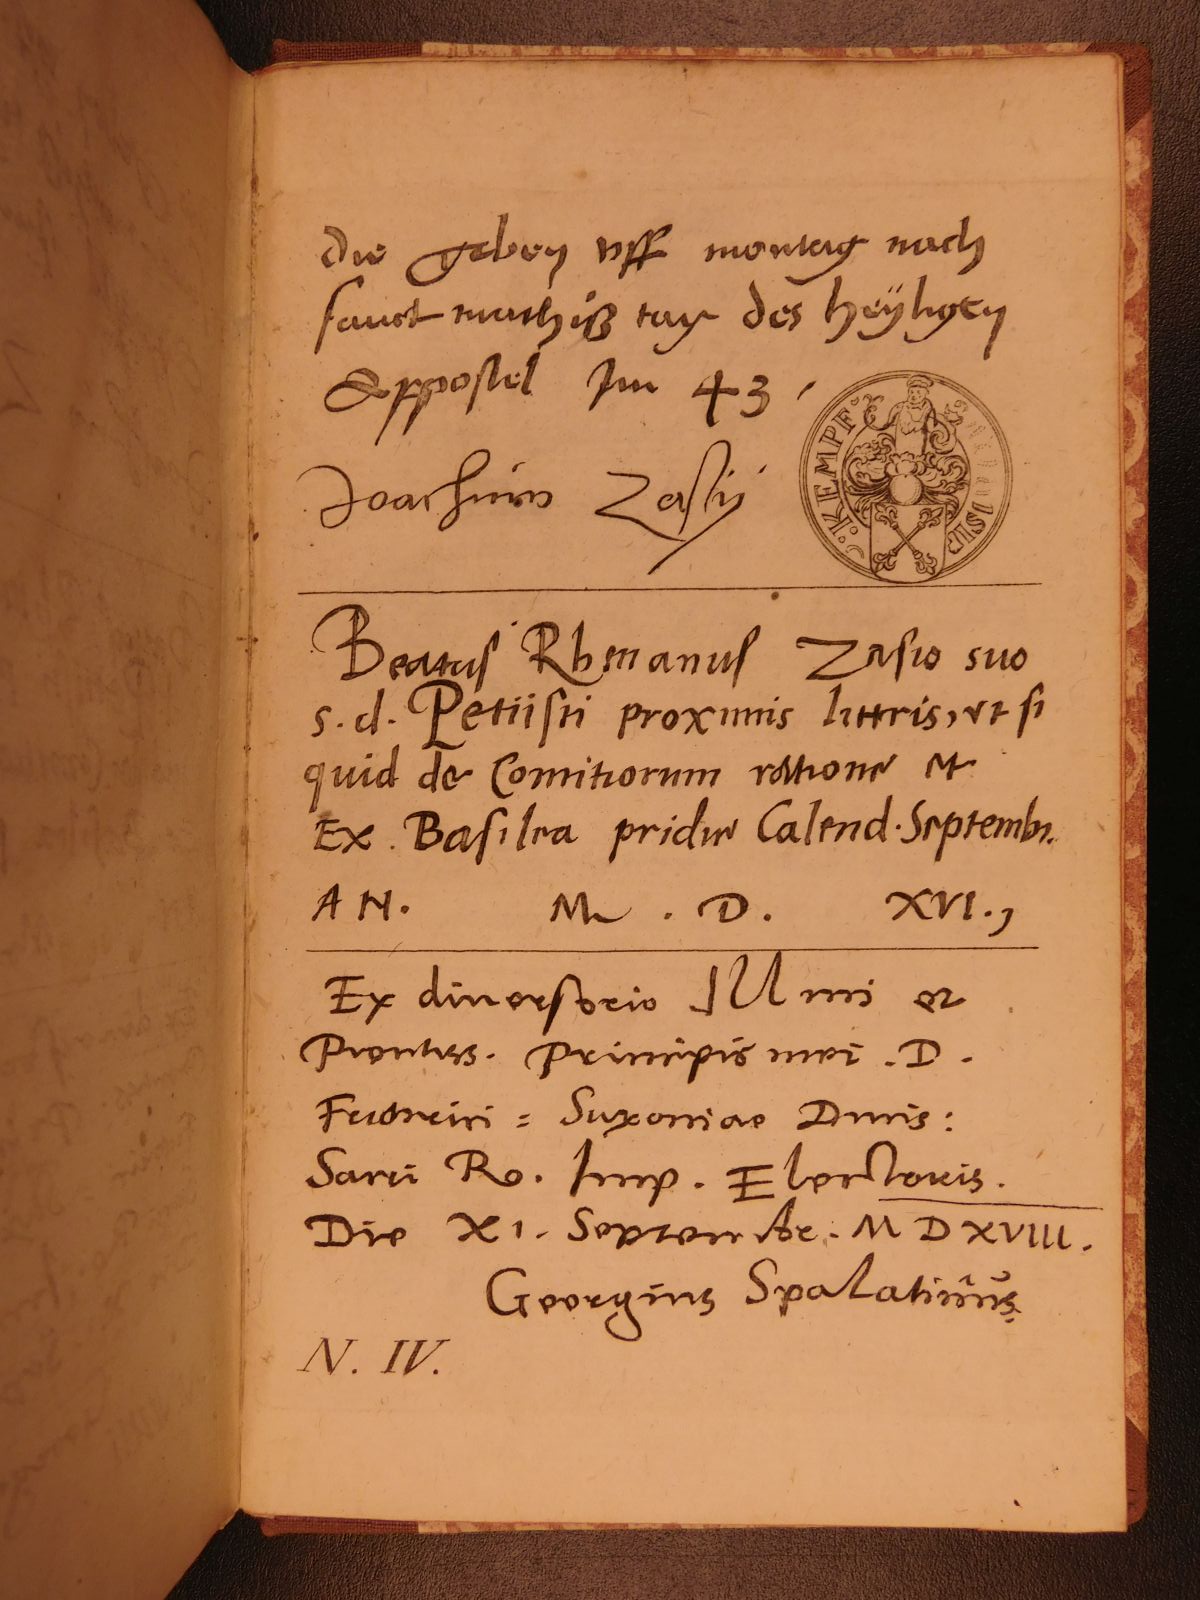 die geben vff montag nach
sanct mathiß tag des heÿligen
Appostel Im 43
KEMPF
Joachim Zasij
Beatus Rhenanus Zasio suo
s. d. Petiisti proximis littris, vt si
quid de Comitiorum ratione et
Ex Basilea pridie Calend. Septembr.
AN. M. D. XVI.,
Ex diuersorio Illmi et
Principis mei . D .
Saxoniae Ducis :
Sacri Ro. Imp. Electoris.
Die XI. Septembr. M D XVIII.
Georgius Spalatinus
N. IV.